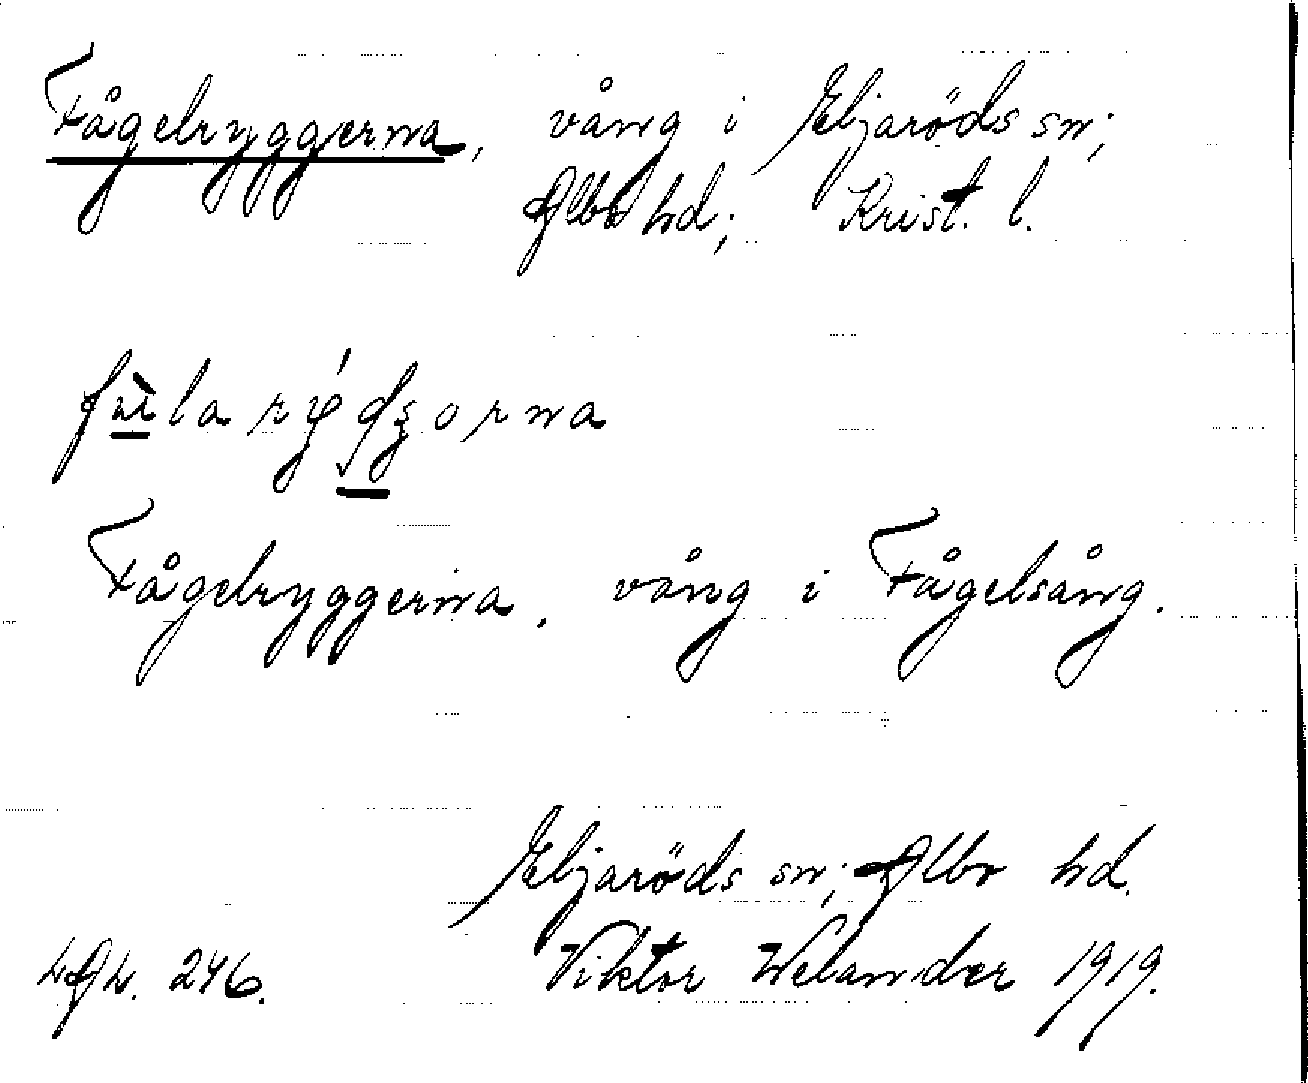 Fågelryggerna, vång i Eljaröds sn;
Albo hd; Krist. l.
Fågelryggerna, vång i Fågelsång.
Eljaröds sn; Albo hd.
246. Viktor Welander 1919.